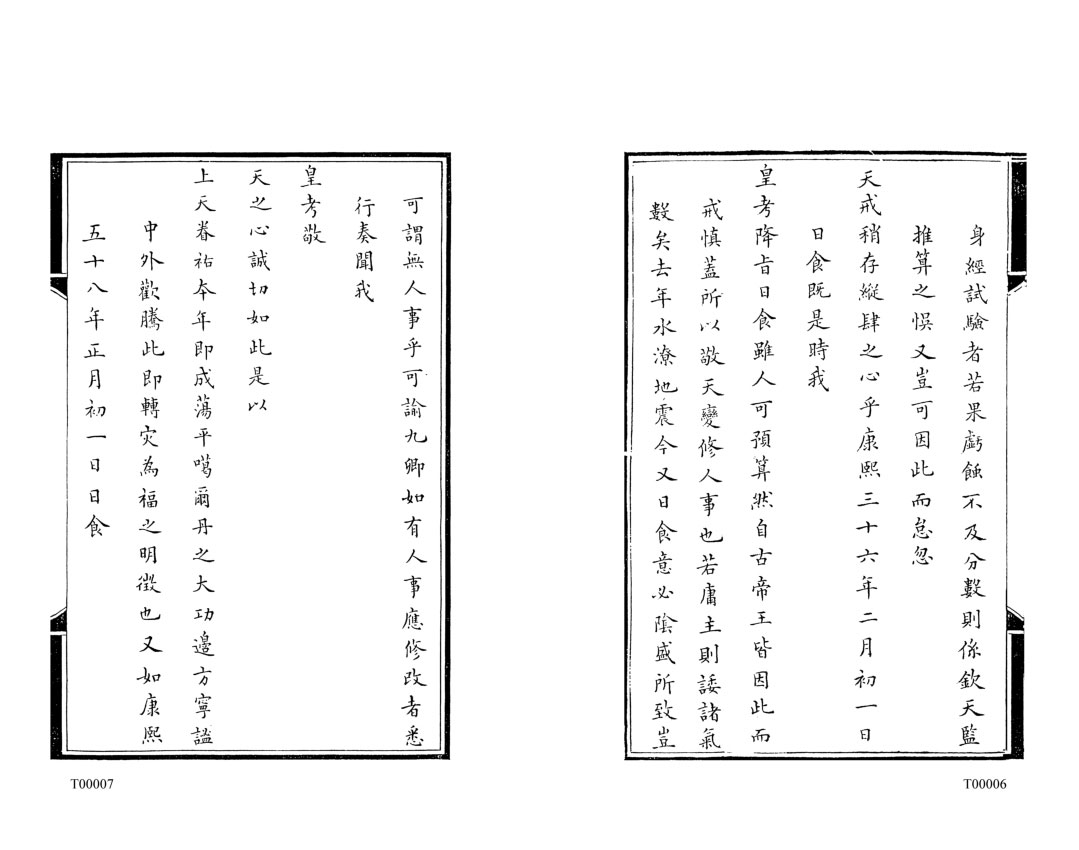 身經試驗者若果虧蝕不及分數則係欽天監
推算之悞又豈可因此而怠忽
天戒稍存縱肆之心乎康熙三十六年二月初一日
日食既是時我
皇考降旨日食雖人可預算然自古帝王皆因此而
戒慎蓋所以敬天變修人事也若庸主則諉諸氣
數矣去年水潦地震今又日食意必陰盛所致豈
T00006
可謂無人事乎可諭九卿如有人事應修改者悉
行奏聞我
皇考敬
天之心誠切如此是以
上天眷祐夲年即成蕩平噶爾丹之大功邊方寧謐
中外歡騰此即轉灾為福之明徵也又如康熙
五十八年正月初一日日食
T00007